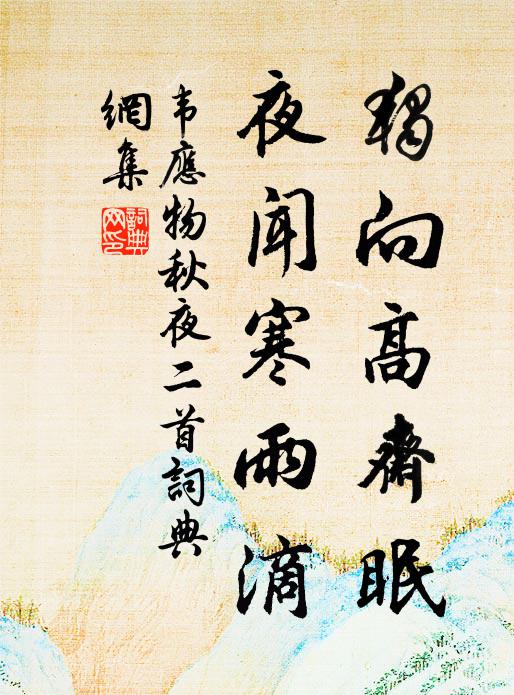 獨向高齋眠
夜聞寒雨滴
韦應物秋夜二首詞典
網集
詞典
网印